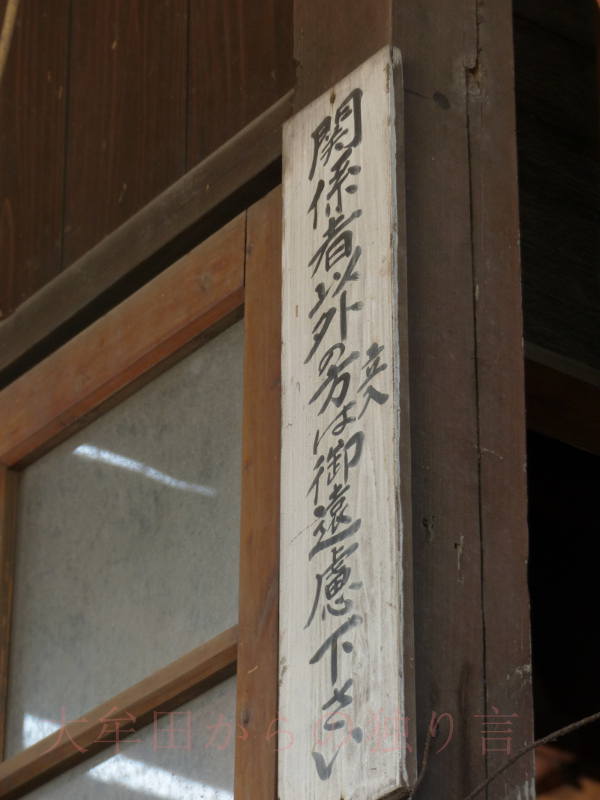 関係者以外の方は御遠慮下さい
立入
大牟田からの独り言